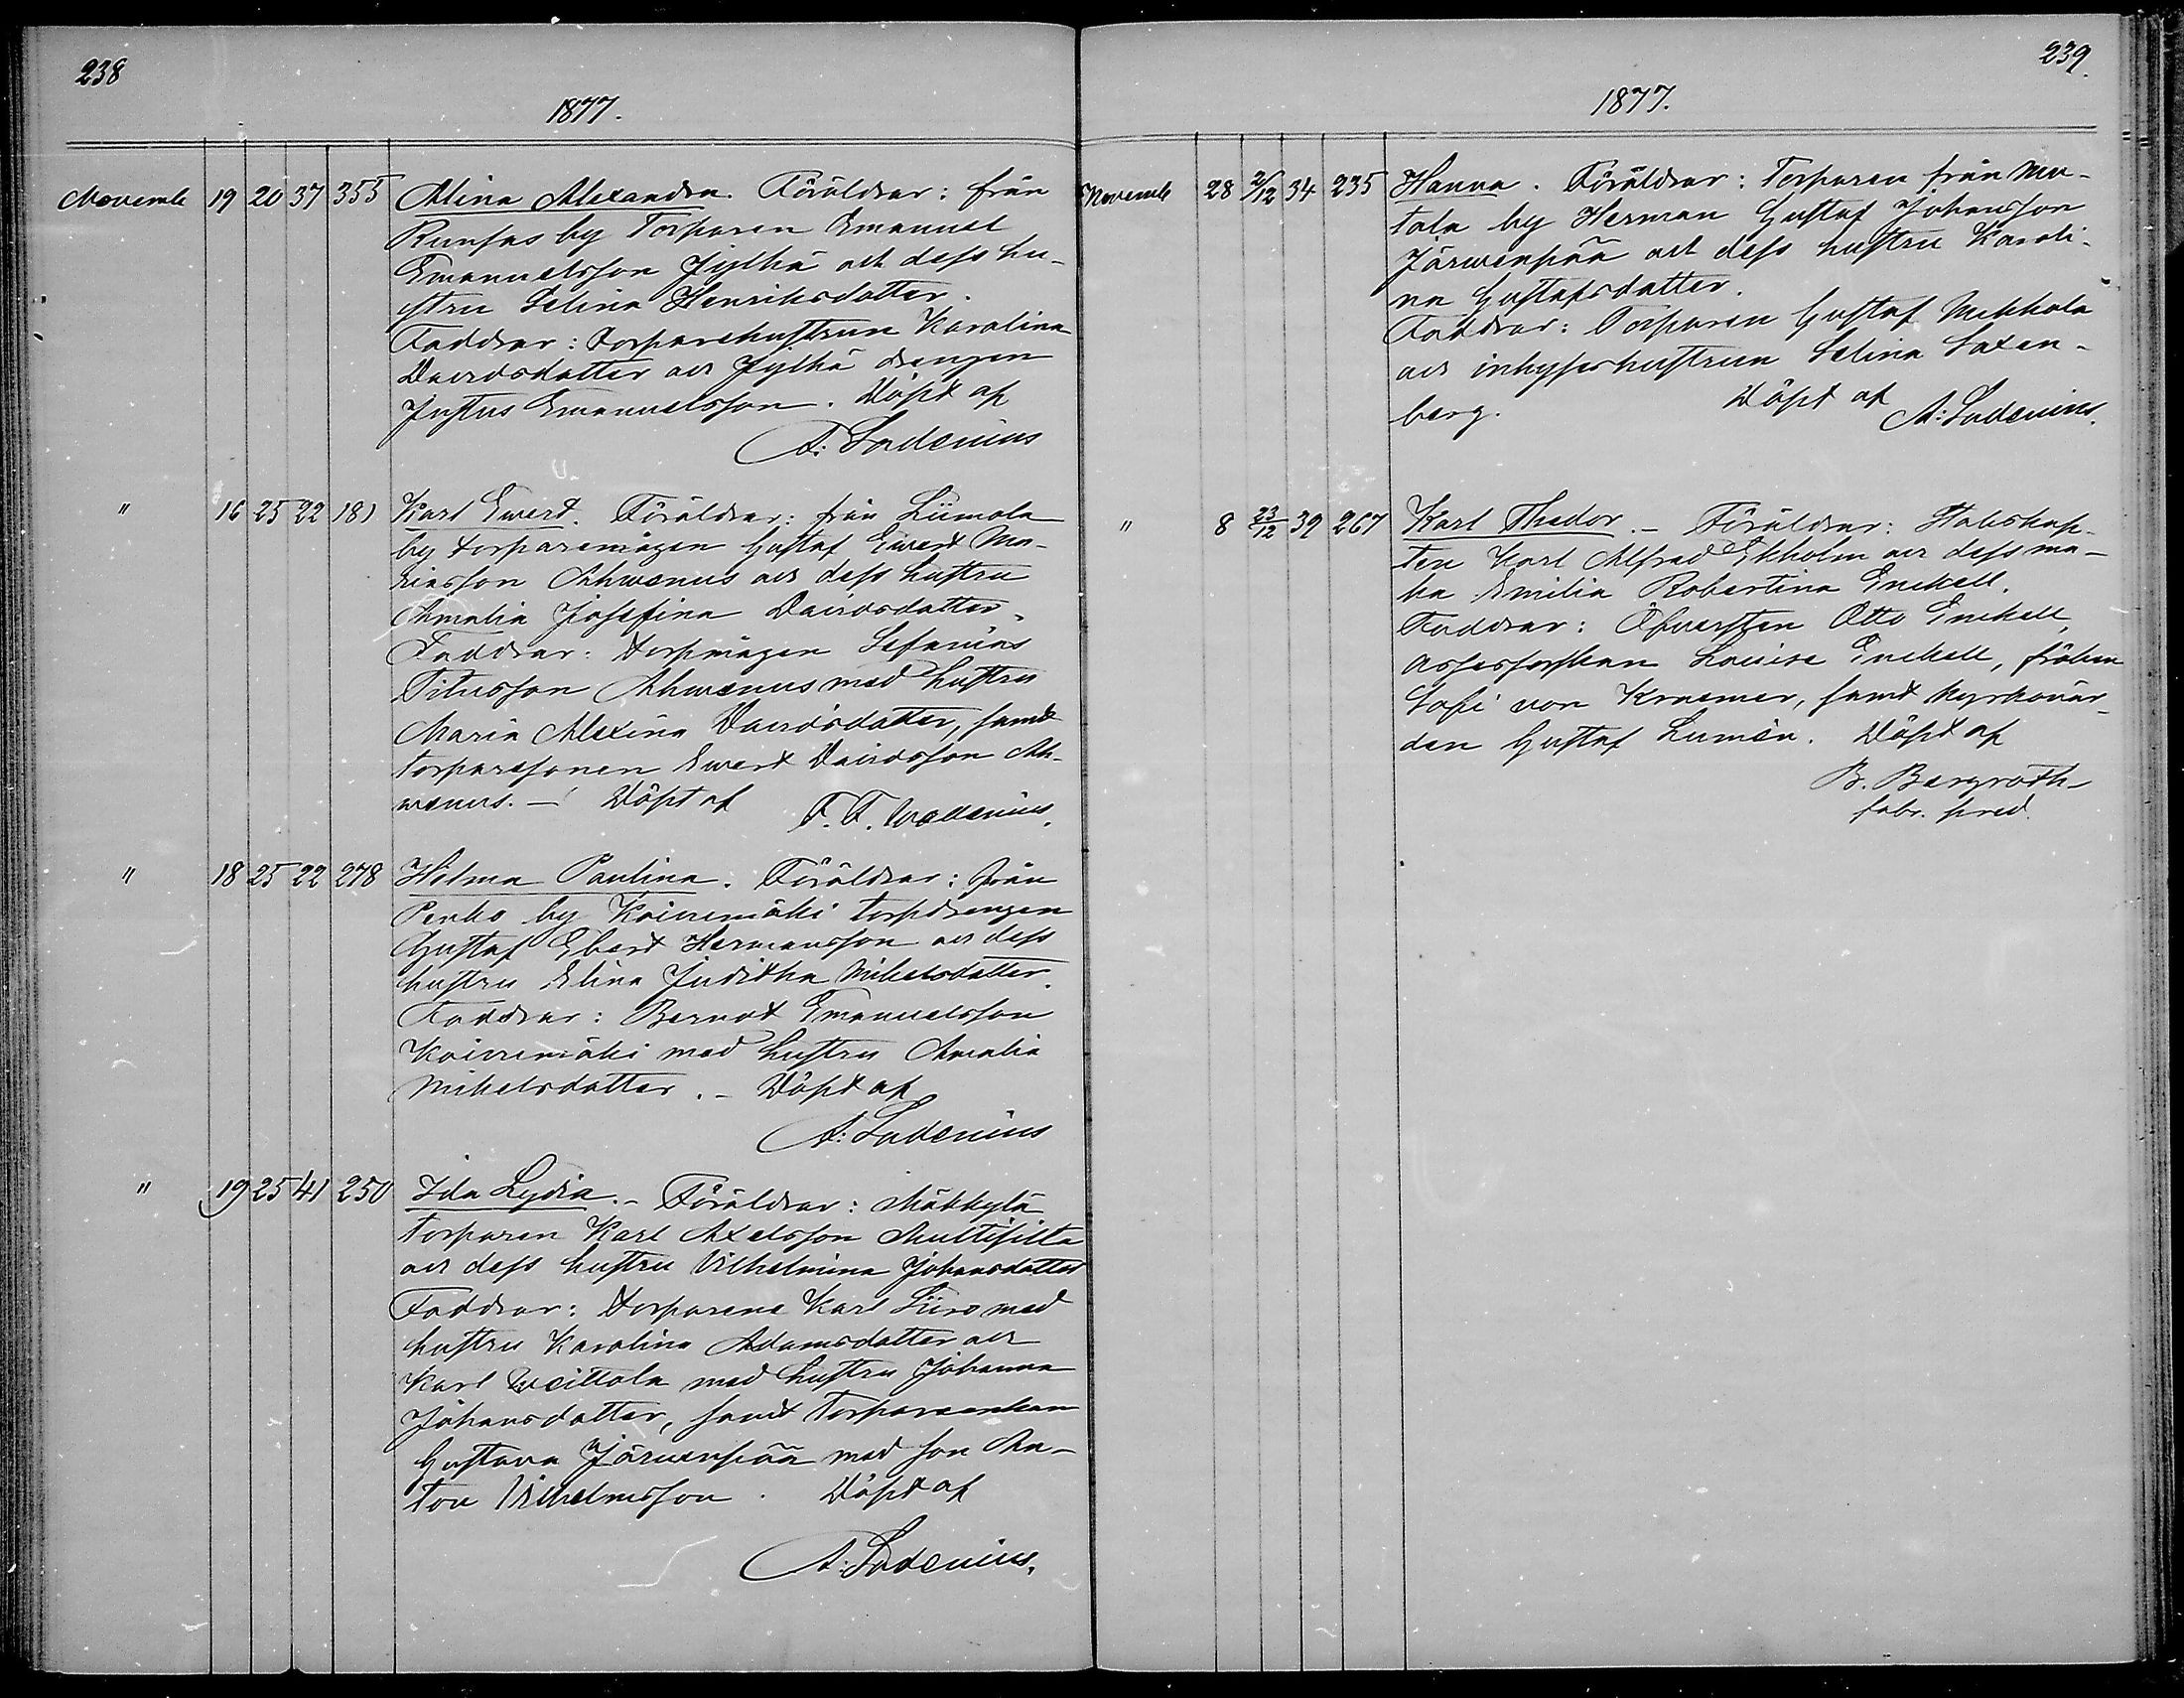 238
1877.
Novemb 19 20 37 355 Alina Alexandra. Föräldrar: från
Punsas by Torparen Emanuel
Emanuelsson Jylhä och dess hu-
stru Selina Henriksdotter.
Faddrar: Torparehustrun Karolina
Davidsdotter och Jylhä drengen
Justus Emanuelsson. Döpt af
A: Ladenius
" 16 25 22 181 Karl Ewert. Föräldrar: från Liimola
by torparemågen Gustaf Ewert Ma-
Ahwenus och dess hustru
Amalia Josefina Davidsdotter.
Faddrar: torpmågen Sefanias
Titusson Ahwenus med hustru
Maria Alexina Davidsdotter, samt
torparesonen Ewert Davidsson Ah-
wenus. – Döpt af F. F. Wallenius.
" 18 25 22 278 Hilma Paulina. Föräldrar: från
Penko by Koivumäki torpdrengen
Gustaf Ebert Hermansson och dess
hustru Elina Juditha Mikelsdotter.
Faddrar: Berndt Emanuelsson
Koivumäki med hustru Amalia
Mikelsdotter. – Döpt af
A: Ladenius
" 19 25 41 250 Ida Lydia. – Föräldrar: Mäkkylä
torparen Karl Axelsson Multisilta
och dess hustru Vilhelmina Johansdotter
Faddrar: torparene Karl Siiro med
hustru Karolina Adamsdotter och
Karl Weittola med hustru Johanna
Johansdotter, samt torpareenkan
Gustava Järwenpää med son An-
ton Vilhelmsson. Döpt af
A: Ladenius.
239.
1877.
Novemb 28 2/12 34 235 Hanna. Föräldrar: Torparen från Mu-
tala by Herman Gustaf Johansson
Järwenpää och dess hustru Karoli-
na Gustafsdotter.
Faddrar: Torparen Gustaf Mikkola
och inhyseshustrun Selina Saxen-
berg. Döpt af A: Ladenius.
" 8 23/12 39 267 Karl Thedor. – Föräldrar: Stabskap-
ten Karl Alfred Ekholm och dess ma-
ka Emilia Robertina Enckell.
Faddrar: Öfversten Otto Enckell,
Assessorskan Louise Enckell, fröken
Sofi von Kraemer, samt kyrkovär-
den Gustaf Lumén. Döpt af
B. Bergroth
fabr. pred.